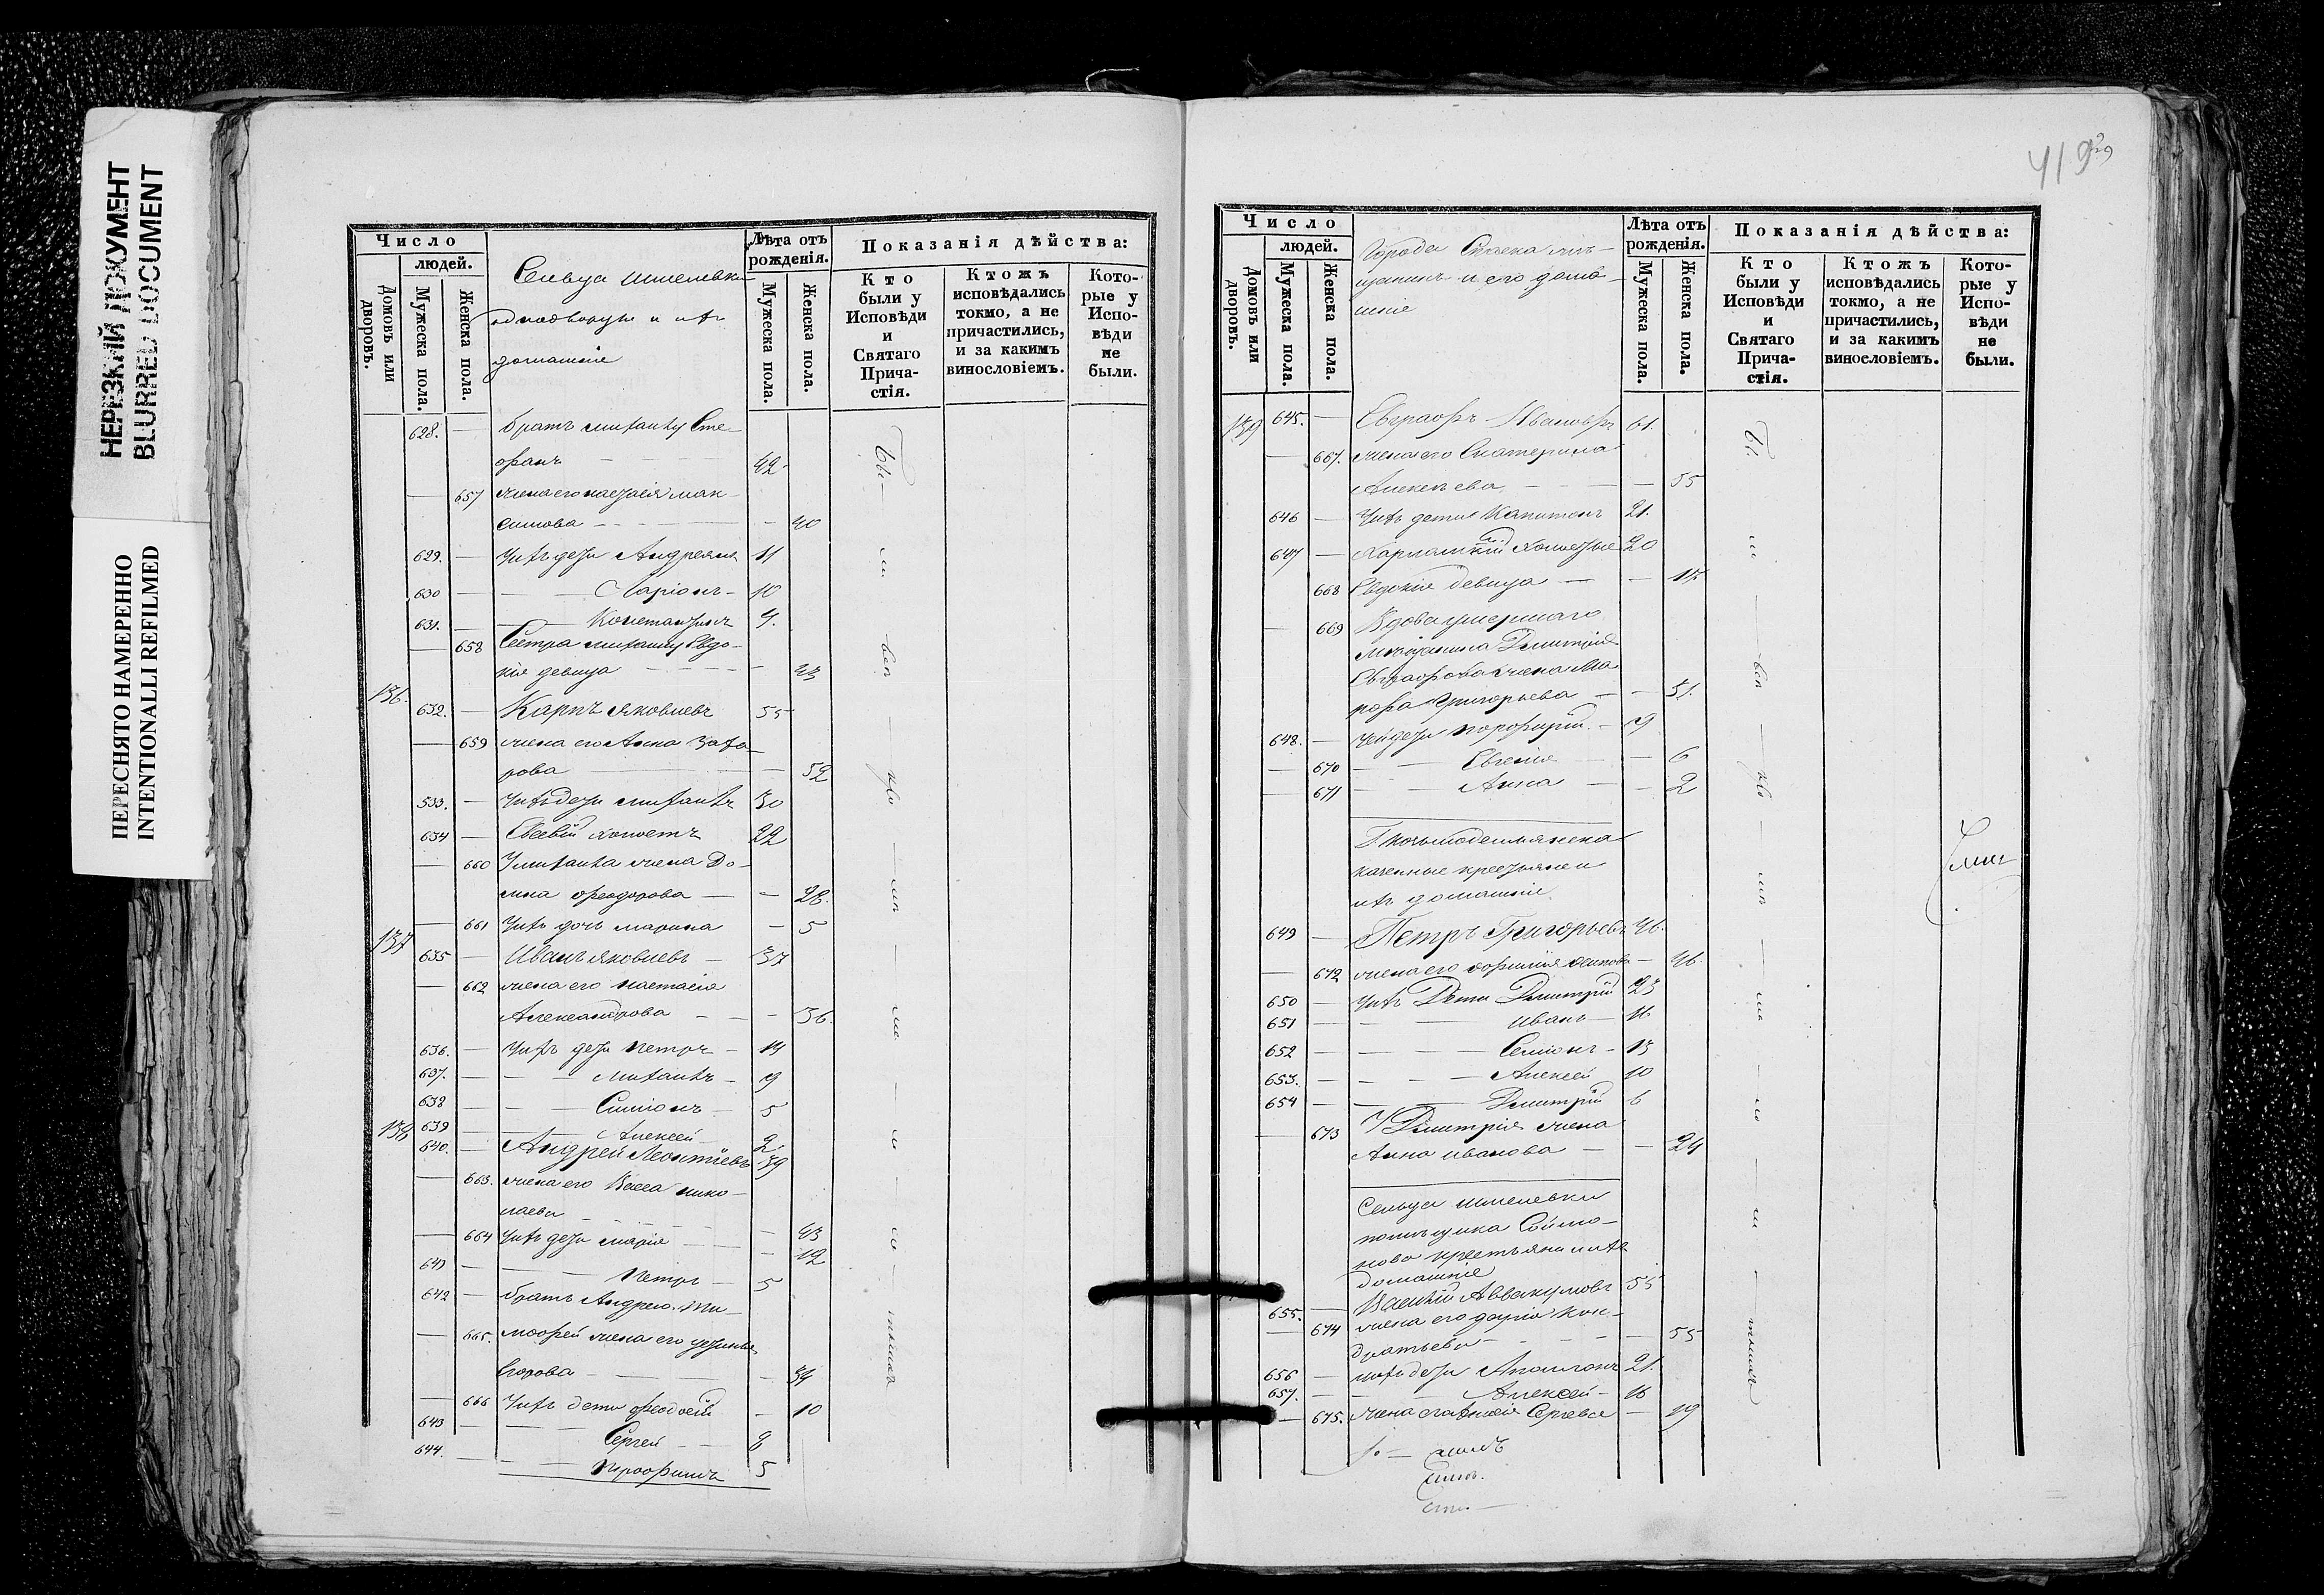 НЕРЕЗКИЙ ДОКУМЕНТ
BLURRED DOCUMENT
ПЕРЕСНЯТО НАМЕРЕННО
INTENTIONALLI REFILMED
Число
людей.
Домовъ или дворовъ.
Мужеска пола.
Женска пола.
Сельца Шмелевки
однодворцы и ихъ
домашніе
Лѣта отъ рожденія.
Мужеска пола.
Женска пола.
Показанія дѣйства:
Кто были у Исповѣди и Святаго Прича-стія.
Ктожъ исповѣдались токмо, а не причастились, и за какимъ винословіемъ.
Кото-рые у Испо-вѣди не были.
628. — братъ Михаилу Сте-
фанъ — 42
— 657 жена его Настасія Мак-
симова — 40
629. — Ихъ дети Андреянъ 11
630 — Ларіонъ — 10
631. — Константинъ 4.
— 658 Сестра Михаилу Евдо-
кія девица — 43
136.
632. — Карпъ Яковлевъ 55
— 659 жена его Анна Заха-
рова — 52
533. — Ихъ дети Михаилъ 30
634 — Евсевій холостъ 22
— 660 У Михаила жена До-
мна Феодорова — 28.
— 661 Ихъ дочь Марина — 5
137
635 — Иванъ Яковлевъ — 37
— 662 жена его Настасія
Александрова — 36.
636. — Ихъ дети Петръ — 14
637. — Михаилъ — 9
638 — Симіонъ — 5
639 — Алексей — 2
138
640. — Андрей Леонтіевъ 39
— 663. жена его Васса Нико-
лаева — 43
— 664 Ихъ дети Марія — 12
641 — Петръ — 5
642 — братъ Андрею Ти-
— 665. мофей жена его Устинья
Егорова — 34
— 666 Ихъ дети Феодосій — 10
643 — Сергей — 8
644. — Трофимъ 5
419
29
Число
людей.
Домовъ или дворовъ.
Мужеска пола.
Женска пола.
Города Спаска мѣ-
щанинъ и его дома-
шніе
Лѣта отъ рожденія.
Мужеска пола.
Женска пола.
Показанія дѣйства:
Кто были у Исповѣди и Святаго Прича-стія.
Ктожъ исповѣдались токмо, а не причастились, и за какимъ винословіемъ.
Кото-рые у Испо-вѣди не были.
139
645. — Евграфъ Ивановъ 61.
— 667. жена его Екатерина
Алексеева — 55
646 — Ихъ дети Капитонъ 21.
647 — Харлампій холостые 20
668 Евдокія девица — 15
— 669 Вдова умершаго
мѣщанина Димитрія
Евграфова жена Ма
рфа Григорьева — 31.
648. — Ея дети Порфирій — 9
— 670 — Евгенія — 6
— 671 — Анна — 2
казенные крестьяне и
ихъ домашніе
649 — Петръ Григорьевъ 46.
— 672 жена его — 46.
650 — Ихъ Дети Димитрій 23
651 — Иванъ — 16
652 — Семіонъ — 13
653. — Алексей 10
654 — Димитрій 6
— 673 У Димитрія жена
Анна Иванова — 24
Сельца Шмелевки
помѣщика Соймо-
нова крестьяне и ихъ
домашніе
655. — Василій Аввакумовъ 55
— 674 жена его Дарія Кон-
дратьева — 55
656 — ихъ дети Аполлонъ 21.
657. — Алексей — 16
— 675. жена Сергеева — 19